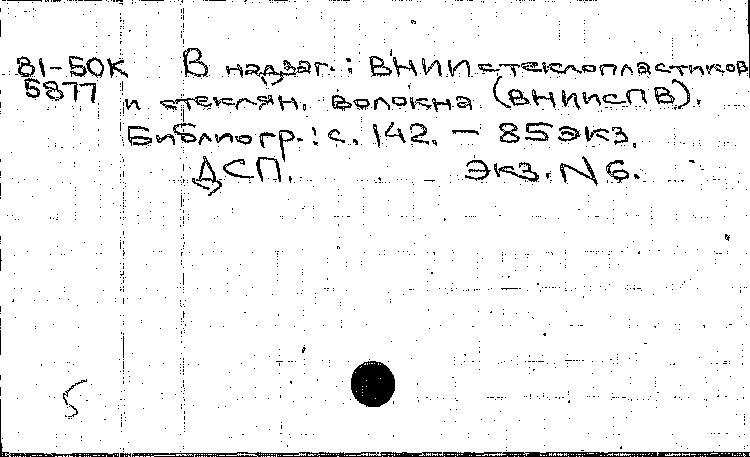 81-50К В надзаг.: ВНИИ стеклопластиков
5877 и стеклян. волокна (ВНИИСПВ).
Библиогр.: с. 142. — 85 экз.
ДСП. Экз. N 6.
5